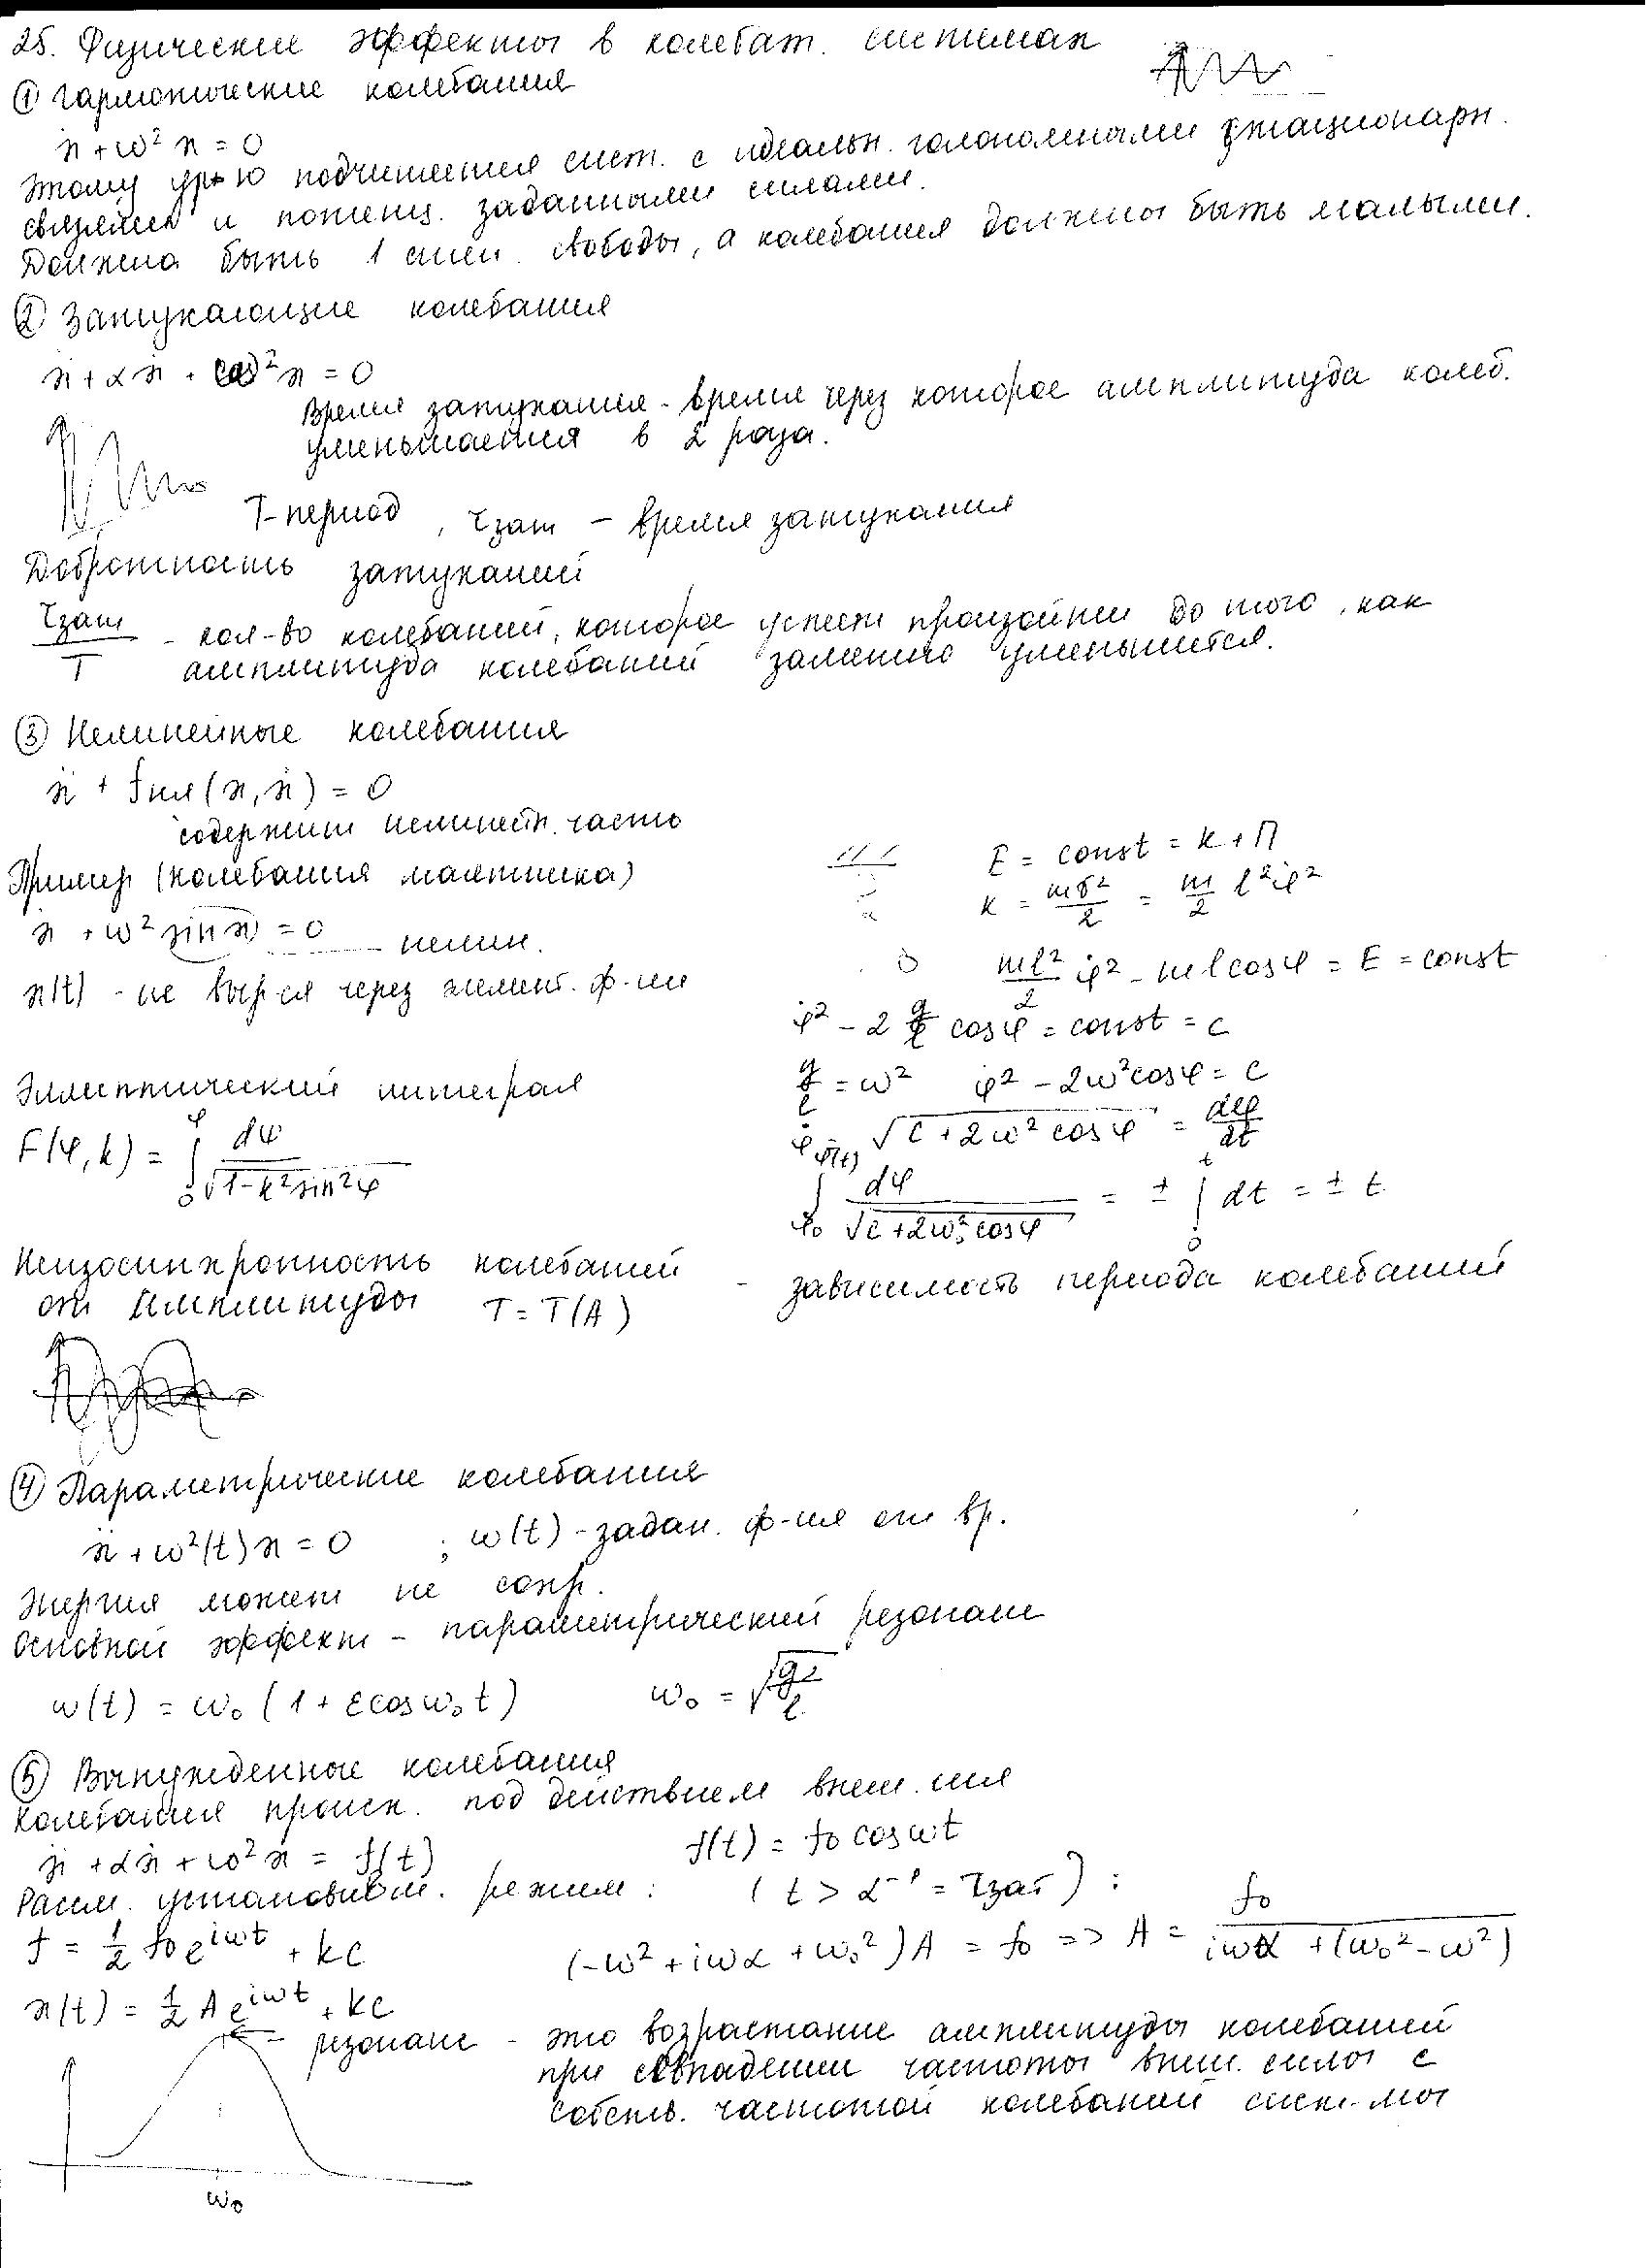 25. Физические эффекты в колебат. системах
① Гармонические колебания
ẍ + ω² x = 0
Этому ур-ю подчиняется сист. с идеальн. голономными стационарн.
связями и потенц. заданными силами.
Должна быть 1 степ. свободы, а колебания должны быть малыми.
② Затухающие колебания
ẍ + αẋ + ω² x = 0
Время затухания - время через которое амплитуда колеб.
уменьшается в 2 раза.
T - период, τзат - время затухания
Добротность затуханий
τзат / T - кол-во колебаний, которое успеет произойти до того, как
амплитуда колебаний заметно уменьшится.
③ Нелинейные колебания
ẍ + fнл(x, ẋ) = 0
содержит нелинейн. часть
Пример (колебания маятника)
ẍ + ω² sin x = 0 нелин.
x(t) - не выр-ся через элемент. ф-ии
E = const = K + П
K = mv²/2 = m/2 l² φ̇²
ml²/2 φ̇² - ml cosφ = E = const
φ̇² - 2 g/l cosφ = const = c
g/l = ω² φ̇² - 2ω² cosφ = c
φ̇ = √(c + 2ω² cosφ) = dφ/dt
∫φ₀^φ(t) dφ/√(c + 2ω² cosφ) = ± ∫₀^t dt = ± t
Эллиптический интеграл
F(φ, k) = ∫₀^φ dφ/√(1 - k² sin²φ)
Неизосинхронность колебаний - зависимость периода колебаний
от амплитуды T = T(A)
④ Параметрические колебания
ẍ + ω²(t) x = 0 ; ω(t) - задан. ф-ия от вр.
Энергия может не сохр.
Основной эффект - параметрический резонанс
ω(t) = ω₀ (1 + ε cos ω₀ t) ω₀ = √(g/l)
⑤ Вынужденные колебания
Колебания происх. под действием внеш. сил
ẍ + αẋ + ω² x = f(t) f(t) = f₀ cos ωt
Рассм. установивш. режим : ( t > α⁻¹ = τзат ) :
f = 1/2 f₀ e^iωt + кс (-ω² + iωα + ω₀²) A = f₀ => A = f₀/(iωα + (ω₀² - ω²))
x(t) = 1/2 A e^iωt + кс
резонанс - это возрастание амплитуды колебаний
при совпадении частоты внеш. силы с
собств. частотой колебаний сист-мы
ω₀